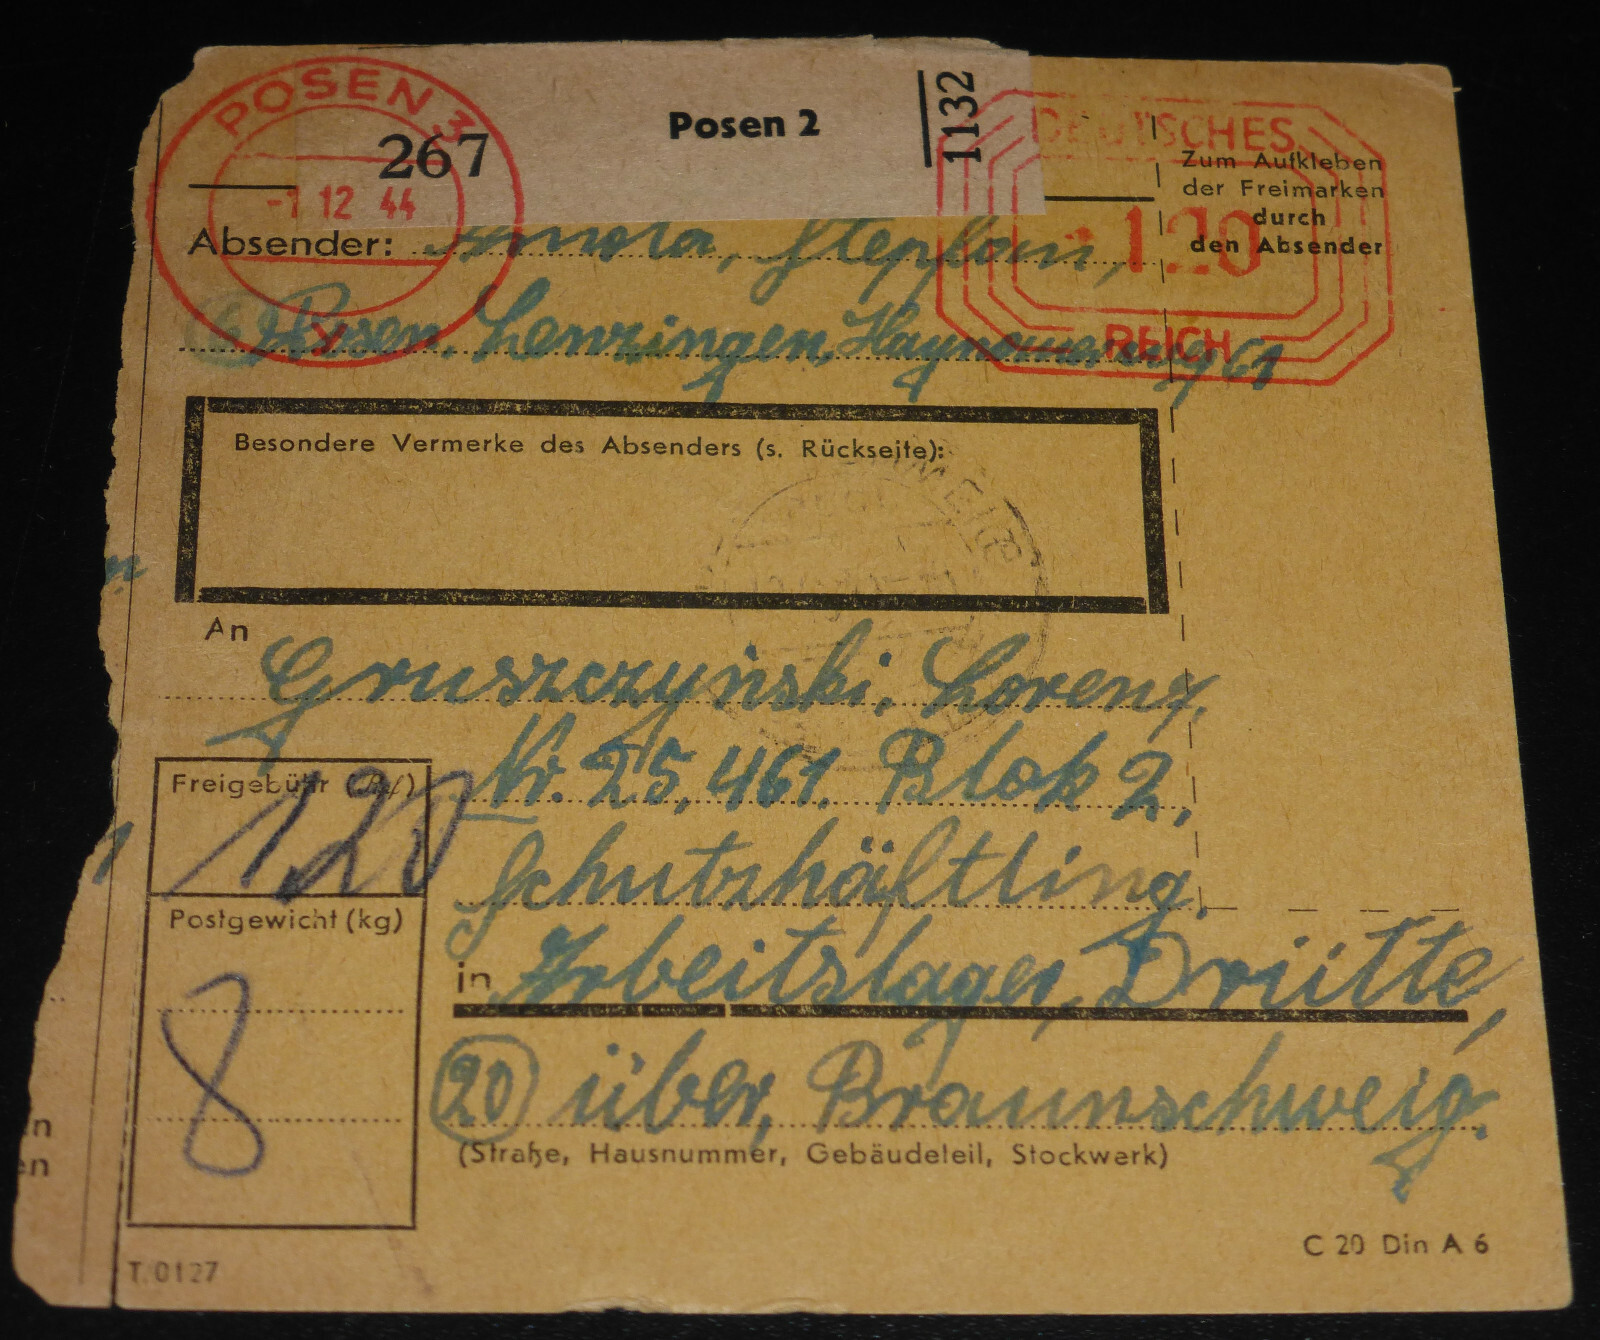 POSEN 3
-1 12 44
267
Posen 2
1132
DEUTSCHES
REICH
120
Zum Aufkleben
der Freimarken
durch
den Absender
Absender: Stephan,
(6) Posen, Lenzingen, 61
Besondere Vermerke des Absenders (s. Rückseite):
An
Gruszczyński, Lorenz,
Nr. 25,461. Blok 2,
Schutzhäftling,
in Arbeitslager, Drütte,
(20) über, Braunschweig.
(Straße, Hausnummer, Gebäudeteil, Stockwerk)
Freigebühr (Rℳ)
1,20
Postgewicht (kg)
8
n
en
T. 0127
C 20 Din A 6